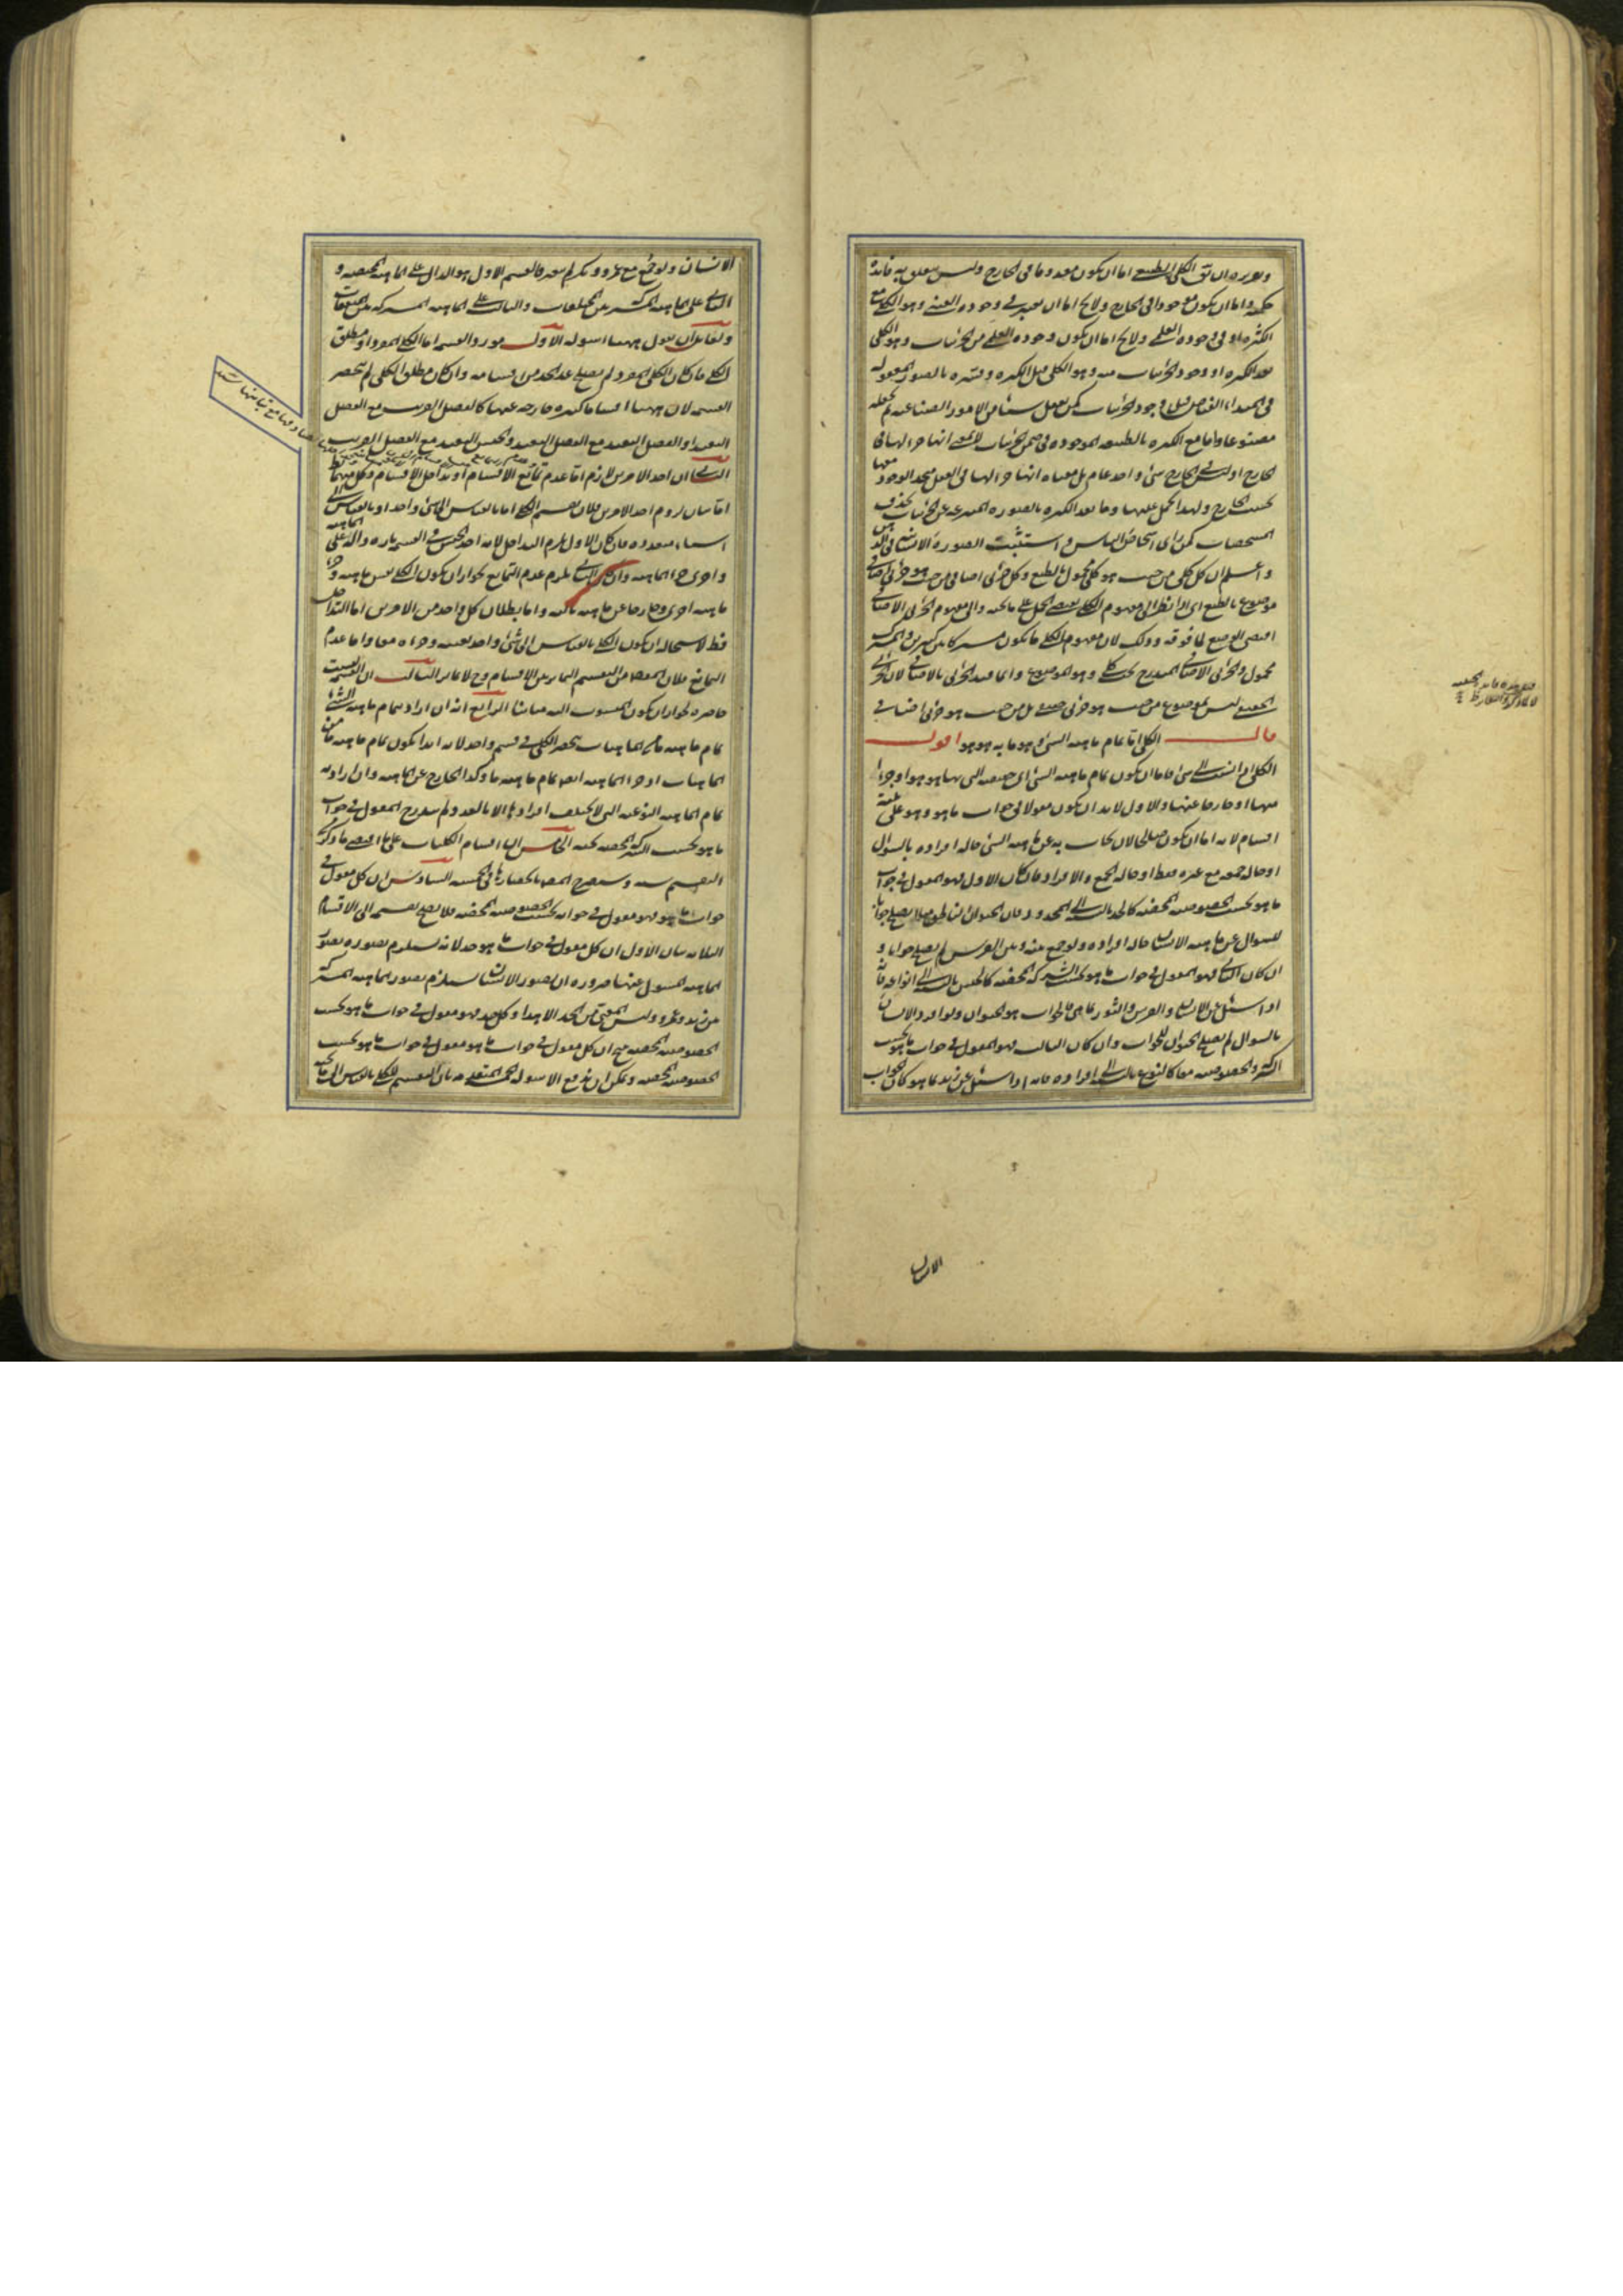 الكلى الطبيعى اما ان يكون معدوما فى الخارج وليس يتعلق به فائدة
حكمية واما ان يكون موجودا فى الخارج ولا يخ اما ان يعتبر فى وجوده العينى وهو الكلى مع
الكثرة او فى وجوده العلمى ولا يخ اما ان يكون وجوده العلمى من الجزئيات وهو الكلى
بعد الكثرة او وجود الجزئيات منه وهو الكلى قبل الكثرة وفسره بالصور المعقولة
فى المبداء الفياض قبل وجود الجزئيات كمن تعقل شيئا من الامور الصناعية ثم يجعله
مصنوعا واما مع الكثرة بالطبيعة الموجودة فى ضمن الجزئيات لا بمعنى انها جزء لها فى
الخارج اذ ليس فى الخارج شئ واحد عام بل معناه انها جزء لها فى العقل متحد الوجود معها
بحسب الخارج ولهذا الحمل عليها وما بعد الكثرة بالصورة المنتزعة عن الجزئيات بحذف
المشخصات كمن راى اشخاص الناس واستثبت الصورة الانسانية فى الذهن
واعلم ان كل كلى من حيث هو كلى محمول بالطبع وكل جزئى اضافى من حيث هو جزئى اضافى
موضوع بالطبع اى اذا نظر الى مفهوم الكلى يقتضى الحمل على ما تحته والى مفهوم الجزئى الاضافى
اقتضى الوضع لما فوقه وذلك لان مفهوم الكلى ما يكون مشتركا بين كثيرين والمشترك
محمول والجزئى الاضافى المندرج تحت كلى وهو الموضوع وانما قيد الجزئى بالاضافى لان الجزئى
الحقيقى ليس بموضوع من حيث هو جزئى حقيقى بل من حيث هو جزئى اضافى
قال الكلى اما تمام ماهية الشئ وهو ما به هو هو اقول
الكلى اذا نسب الى شئ فاما ان يكون تمام ماهية الشئ اى حقيقته التى بها هو هو او جزءا
منها او خارجا عنها والاول لا بد ان يكون مقولا فى جواب ما هو وهو على ثلثة
اقسام لانه اما ان يكون صالحا لان يجاب به عن ماهية الشئ حالة افراده بالسؤال
او حالة جمعه مع غيره فقط او حالة الجمع والافراد فان كان الاول فهو المقول فى جواب
ما هو بحسب الخصوصية المحضة كالحد بالنسبة الى المحدود فان الحيوان الناطق مثلا يصلح جوابا
للسؤال عن ماهية الانسان حالة افراده ولو جمع بينه وبين الفرس لم يصلح جوابا و
ان كان الثانى فهو المقول فى جواب ما هو بحسب الشركة المحضة كالجنس بالنسبة الى انواعه فانه
اذا سئل عن الانسان والفرس والثور بما هى فالجواب هو الحيوان ولو افرد الانسان
بالسوال لم يصلح الحيوان للجواب وان كان الثالث فهو المقول فى جواب ما هو بحسب
الشركة والخصوصية معا كالنوع بالنسبة الى افراده فانه اذا سئل عن زيد بما هو كان الجواب
الانسان
الانسان ولو جمع مع عمرو وبكر لم يتغير فالقسم الاول هو الدال على الماهية المختصة و
الثانى على الماهية المشتركة بين المختلفات والثالث على الماهية المشتركة بين المتفقات
ولقائل ان يقول ههنا اسولة الاول مورد القسمة اما الكلى المفرد او مطلق
الكلى فان كان الكلى المفرد لم يصلح عد الحد من اقسامه وان كان مطلق الكلى لم تنحصر
القسمة لان ههنا اقساما كثيرة خارجة عنها كالفصل القريب مع الفصل
البعيد او الفصل البعيد مع الفصل البعيد والجنس البعيد مع الفصل القريب
الثانى ان احد الامرين لازم اما عدم تمانع الاقسام او تداخل الاقسام وكل منهما بط
اما بيان لزوم احد الامرين فلان تقسيم الكلى اما بالقياس الى شئ واحد او بالقياس الى
اشياء متعددة فان كان الاول يلزم التداخل لانه اخذ الجنس فى القسمة تارة دالا على الماهية
واخرى جزء الماهية وان كان الثانى يلزم عدم التمانع لجواز ان يكون الكلى نفس ماهية وجزء
ماهية اخرى وخارجا عن ماهية ثالثة واما بطلان كل واحد من الامرين اما التداخل
فظ لاستحالة ان يكون الكلى بالقياس الى شئ واحد نفسه وجزءه معا واما عدم
التمانع فلان المقصود من التقسيم التمايز بين الاقسام وح لا تمايز الثالث ان القسمة ليست
حاصرة لجواز ان يكون المنسوب اليه مباينا الرابع انه ان اراد بتمام ماهية الشئ
تمام ماهية ما من الماهيات ينحصر الكلى فى قسم واحد لانه ابدا يكون تمام ماهية ما من
الماهيات او جزء الماهية ايضا تمام ماهية ما وكذا الخارج عن الماهية وان اراد به
تمام الماهية النوعية التى لا يختلف افرادها الا بالعدد لم يندرج المقول فى جواب
ما هو بحسب الشركة المحضة تحته الخامس ان اقسام الكليات على ما اقتضى ما ذكره
التقسيم ستة وسيصرح المصنف بانحصارها فى الخمسة السادس ان كل مقول فى
جواب ما هو فهو مقول فى جوابه بحسب الخصوصية المحضة فلا يصلح تقسيمه الى الاقسام
الثلاثة بيان الاول ان كل مقول فى جواب ما هو حد لانه يستلزم تصوره تصور
الماهية المسؤل عنها ضرورة ان تصور الانسان يستلزم تصور الماهية المشتركة
بين زيد وعمرو وليس المعنى من الحد الا هذا وكل حد فهو مقول فى جواب ما هو بحسب
الخصوصية المحضة ينتج ان كل مقول فى جواب ما هو مقول فى جواب ما هو بحسب
الخصوصية المحضة ويمكن ان يدفع الاسولة الخمسة المتقدمة بان التقسيم للكلى بالقياس الى ما تحته